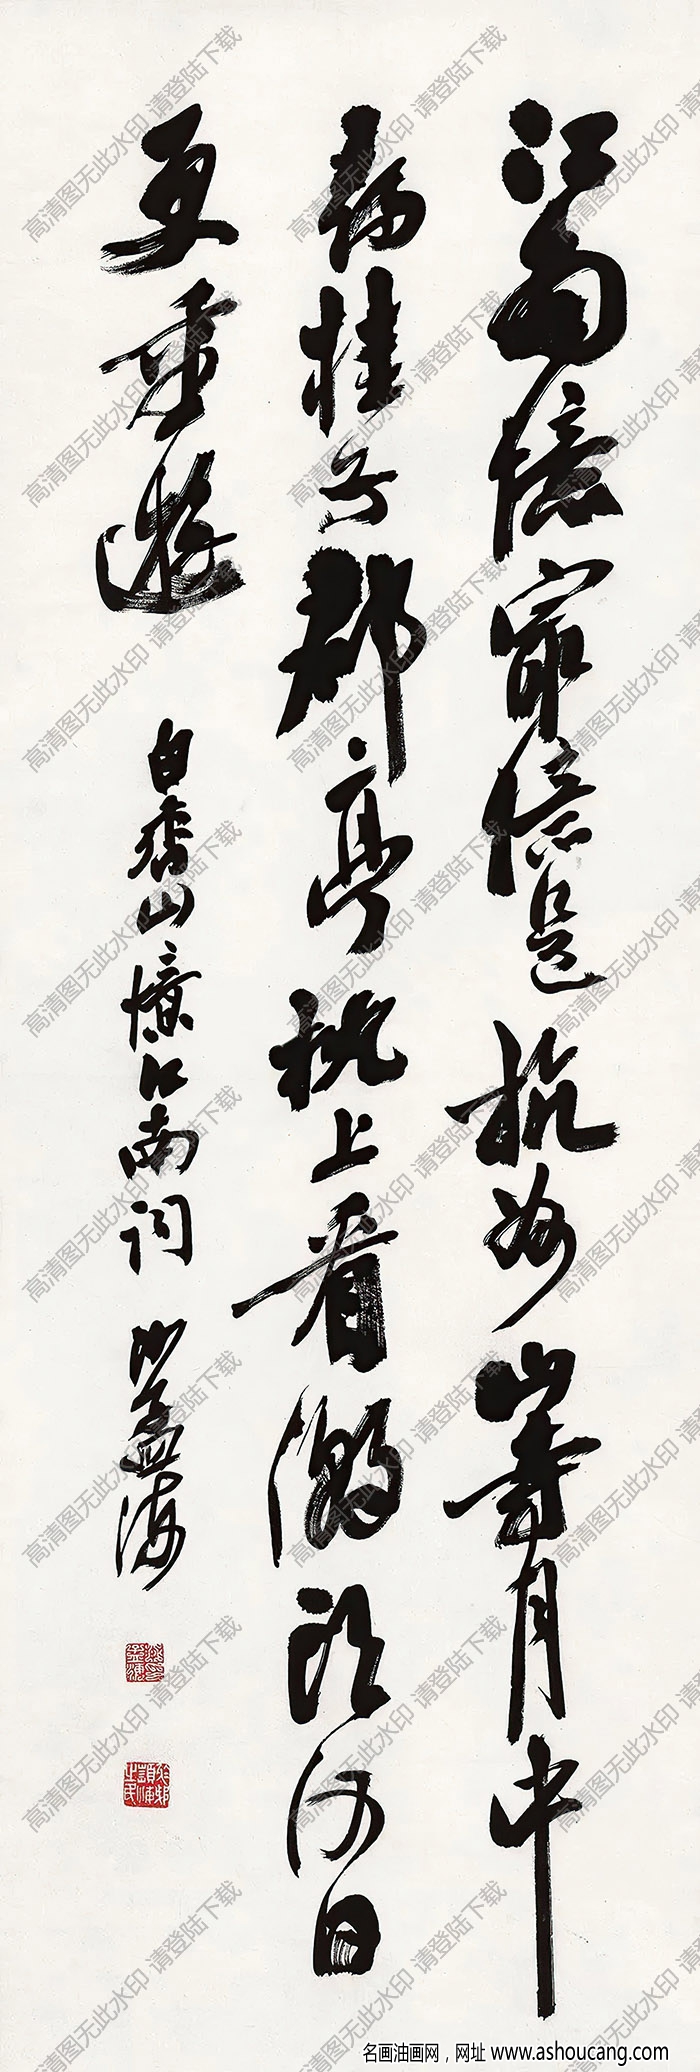 江南憶最憶是杭州山寺月中
尋桂子郡亭枕上看潮頭何日
更重遊
白香山憶江南詞 沙孟海
高清图无此水印 请登陆下载
名画油画网，网址 www.ashoucang.com